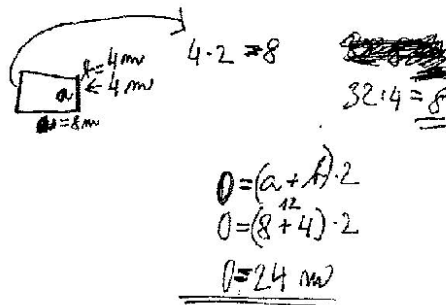 b=4m
a ← 4m
a=8m
4·2=8
32:4=8
O=(a+b)·2
12
O=(8+4)·2
O=24 m